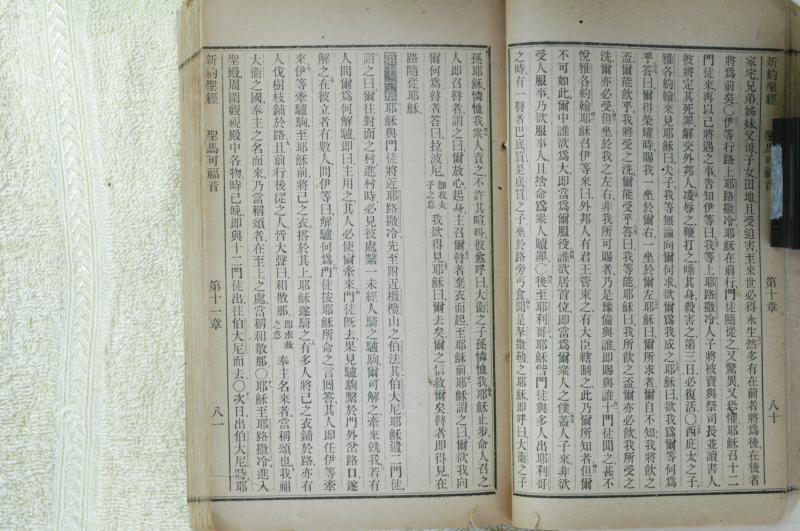 新約聖經 聖馬可福音 第十章 八十
家宅兄弟姊妹父母子女田地且受迫害至來世必得永生然多有在前者將爲後在後者
將爲前矣〇伊等行路上耶路撒冷耶穌在前行門徒隨從之又驚異又恐懼耶穌召十二
門徒來再以己將遇之事告知伊等曰我等上耶路撒冷人子將被賣與祭司長並讀書人
彼將定其死罪解交外邦人凌辱之鞭打之唾其身殺害之第三日必復活〇西庇太之子
雅各約翰來見耶穌曰夫子我等無論向爾何求欲爾爲我成之耶穌曰欲我爲爾等何爲
乎答曰爾得榮耀時賜我一坐於爾右一坐於爾左耶穌曰爾所求者爾自不知我將飲之
盃爾能飲乎我將受之洗爾能受乎答曰我等能耶穌曰我所飲之盃爾亦必飲我所受之
洗爾亦必受但坐於我之左右非我所可賜者乃是豫備與誰即賜與誰十門徒聞之甚不
悅雅各約翰耶穌召伊等來曰外邦人有君王管束之有大臣轄制之此乃爾所知者但爾
不可如此爾中誰欲爲大即當爲爾服役誰欲居首位即當爲爾衆人之僕蓋人子來非欲
受人服事乃欲服事人且捨命爲衆人贖罪〇後至耶利哥耶穌偕門徒與多人出耶利哥
之時有一瞽者巴底買是底買之子坐於路旁丐食聞是拿撒勒之耶穌即呼曰大衞之子
孫耶穌憐恤我衆人責之不許其喧呌彼愈呼曰大衞之子孫憐恤我耶穌止步命人召之
人即召瞽者謂之曰爾放心起身主召爾瞽者棄衣而起至耶穌前耶穌謂之曰爾欲我向
爾何爲瞽者答曰拉波尼即我夫子之意我欲得見耶穌曰爾去矣爾之信救爾矣瞽者即得見在
路隨從耶穌
耶穌與門徒將近耶路撒冷先至附近橄欖山之伯法其伯大尼耶穌遣二門徒
謂之曰爾往對面之村進村時必見彼處繫一未經人騎之驢駒爾可解之牽來就我若有
人問爾爲何解驢即曰主用之其人必使爾牽來門徒旣去果見驢駒繫於門外岔路口遂
解之在彼立者有數人問伊等曰解驢何爲門徒按耶穌所命之言回答其人即任伊等牽
來伊等牽驢駒至耶穌前將己之衣搭於其上耶穌遂騎之有多人將己之衣鋪於路亦有
人伐樹枝鋪於路且前行後從之人皆大聲曰和散那即求救之意奉主名來者當稱頌也我祖
大衞之國奉主之名而來乃當稱頌者在至上之處當稱和散那〇耶穌至耶路撒冷進入
聖殿周圍觀視殿中各物時已晚即與十二門徒出往伯大尼而去〇次日出伯大尼時耶
新約聖經 聖馬可福音 第十一章 八一